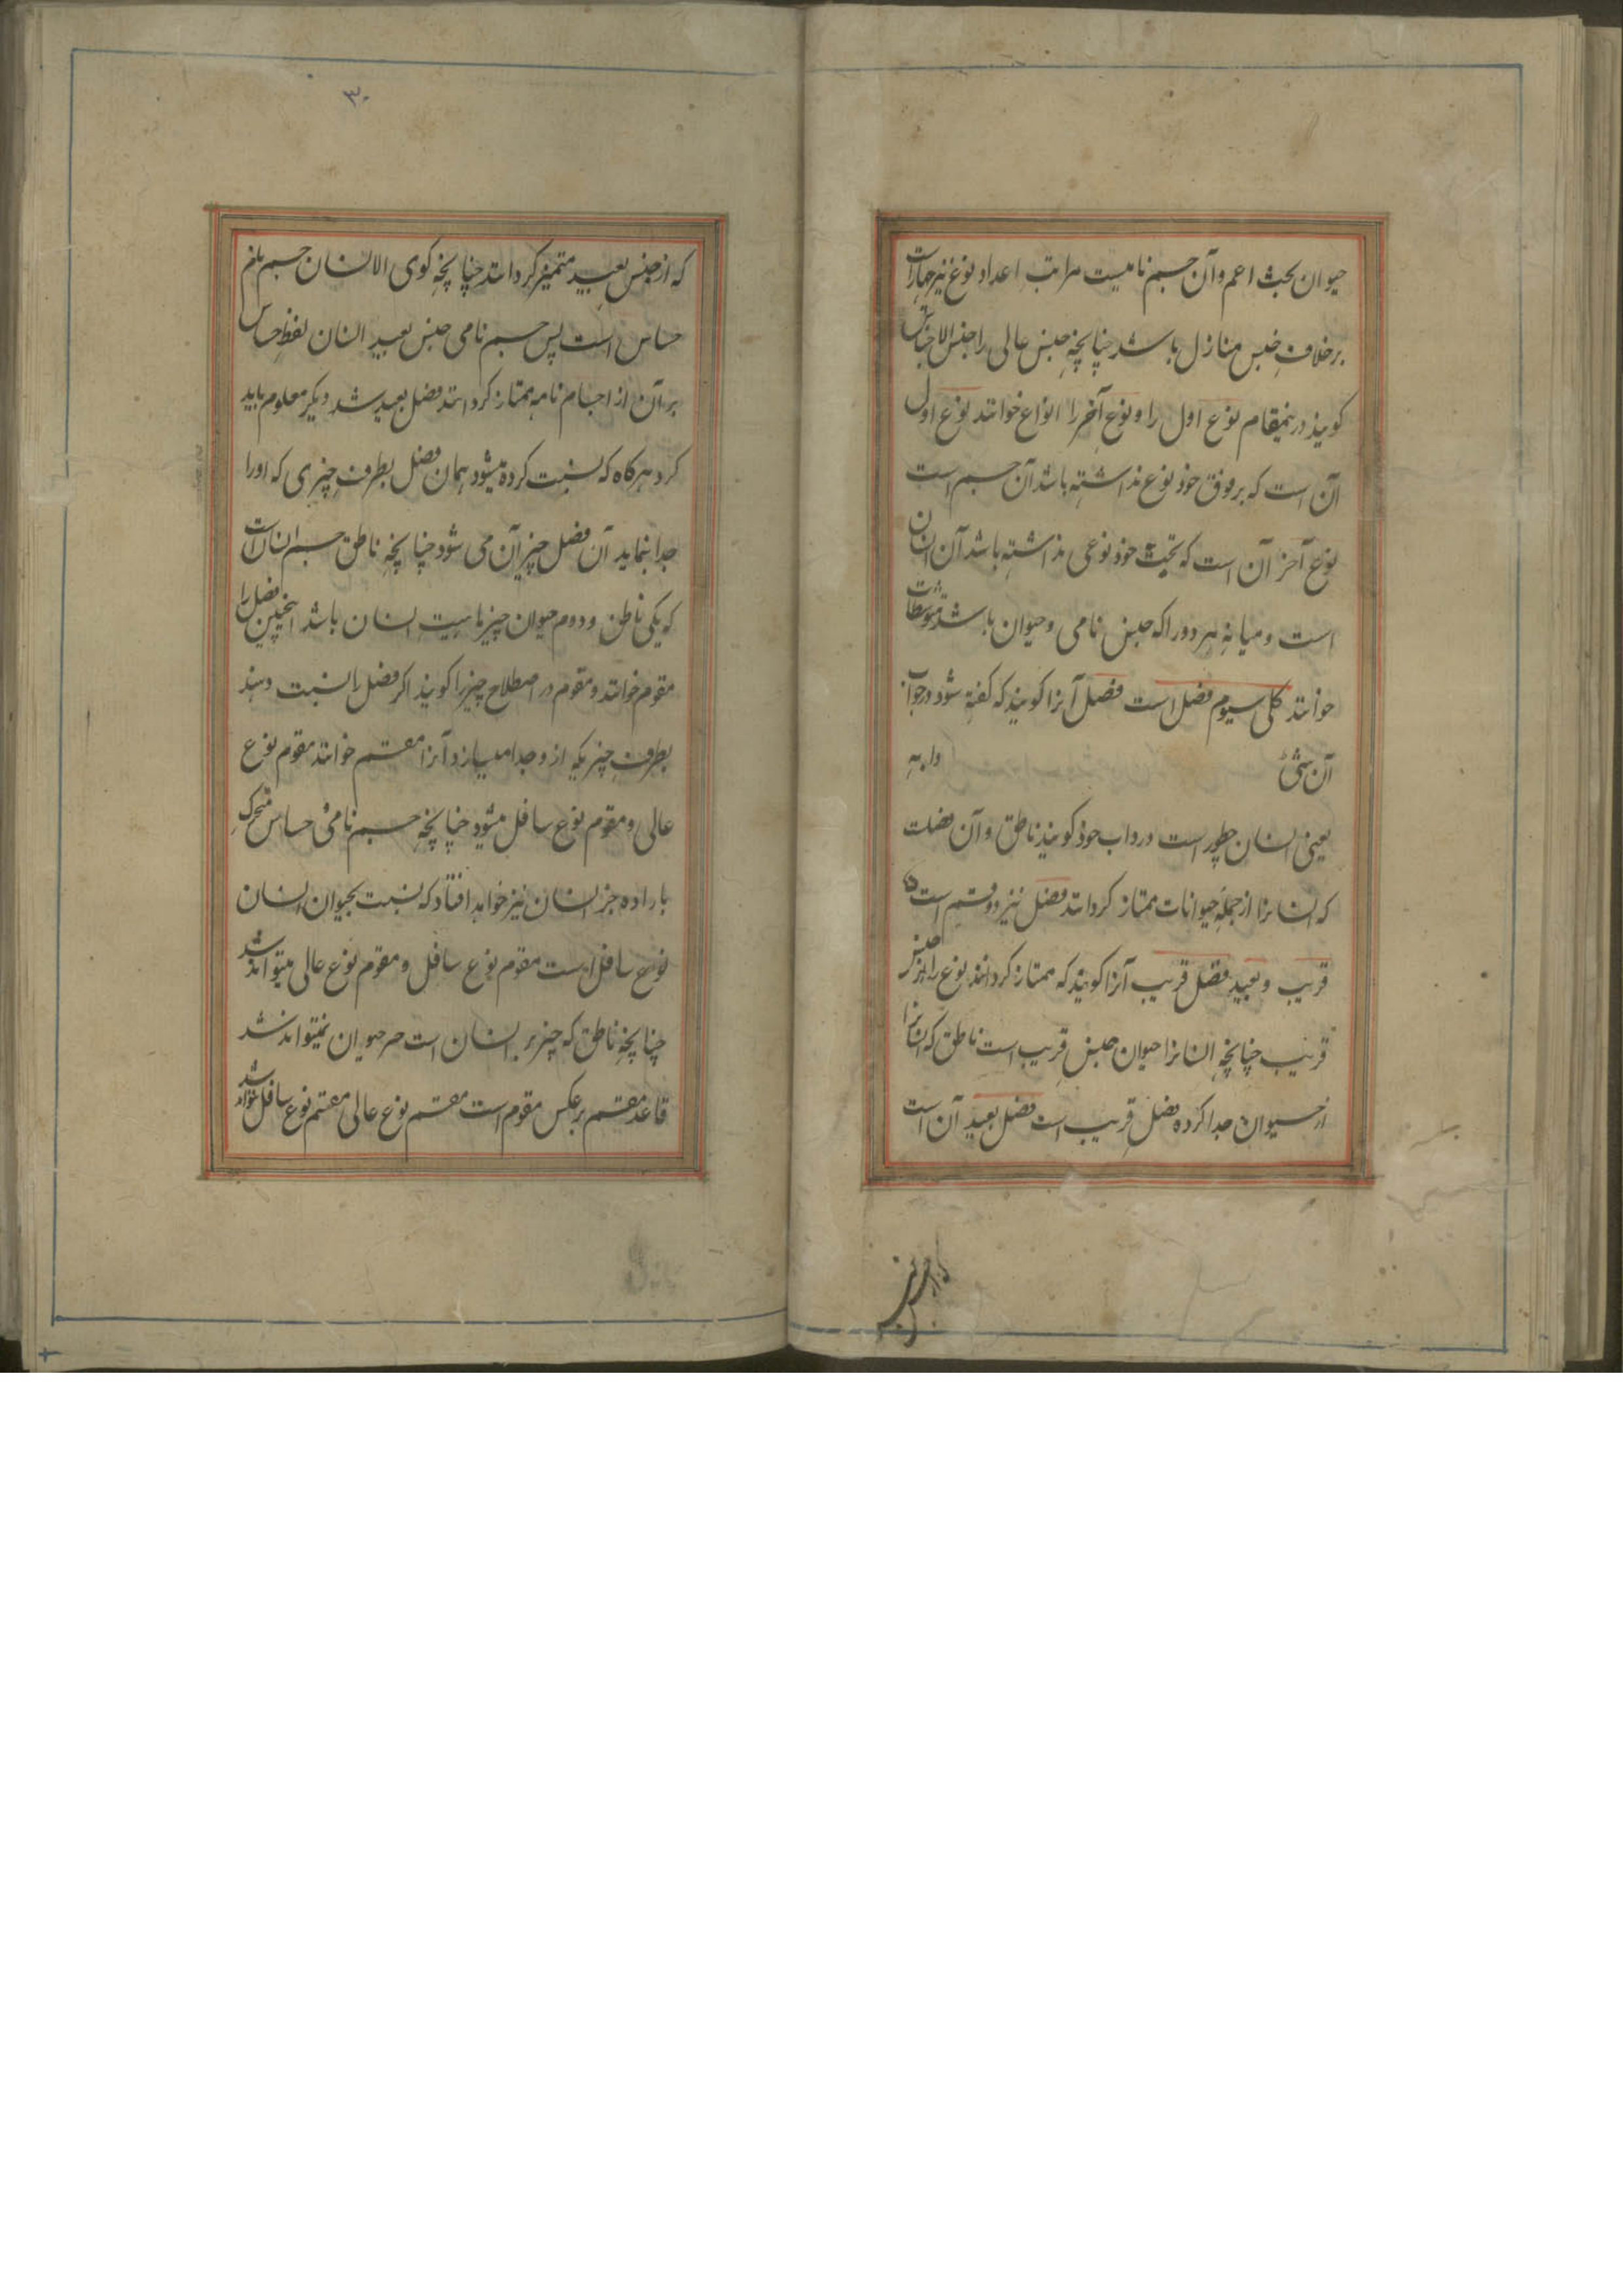 حیوان بحث اعم و آن جسم نامیست مراتب اعداد نوع نیز چهار است
برخلاف جنس منازل باشد چنانچه جنس عالی را جنس الاجناس
کویند درینمقام نوع اول را و نوع آخر را انواع خوانند نوع اول
آن است که بر فوق خود نوع نداشته باشد آن جسم است
نوع آخر آن است که تحت خود نوعی نداشته باشد آن انسان
است و میانه هر دو را که جنس نامی و حیوان باشد متوسطات
خوانند کلی سیوم فصل است فصل آنرا کویند که کفته شود در جواب
آن شئ
یعنی انسان چطور است در واب خود کویند ناطق و آن فصلت
که انسانرا از جمله حیوانات ممتاز کرداند فصل نیز دو قسم است
قریب و بعید فصل قریب آنرا کویند که ممتاز کرداند نوع را از جنس
قریب چنانچه انسانرا حیوان جنس قریب است ناطق که انسانرا
از حیوان جدا کرده فصل قریب است فصل بعید آن است
۳۰
که از جنس بعید متمیز کرداند چنانچه کوی الانسان جسم نام
حساس است پس جسم نامی جنس بعید انسان لفظ حساس
بر آن از اجسام نامه ممتاز کرداند فصل بعید شد دیگر معلوم باید
کرد هرکاه که نسبت کرده میشود همان فصل بطرف چیزی که اورا
جدا بنماید آن فصل چیز آن می شود چنانچه ناطق جسم انسان است
که یکی ناطق و دوم حیوان چیز ماهیت انسان باشد اینچنین فصل را
مقوم خوانند و مقوم در اصطلاح چیز را کویند اکر فصل را نسبت دهند
بطرف چیزیکه ازو جدا میسازد آنرا مقسم خوانند مقوم نوع
عالی و مقوم نوع سافل میشود چنانچه جسم نامی حساس متحرک
باراده جز انسان نیز خواهد افتاد که نسبت بحیوان انسان
نوع سافل است مقوم نوع سافل و مقوم نوع عالی میتواند شد
چنانچه ناطق که چیز بر انسان است حر حیوان نمیتواند شد
قاعد مقسم برعکس مقوم است مقسم نوع عالی مقسم نوع سافل نتواند شد